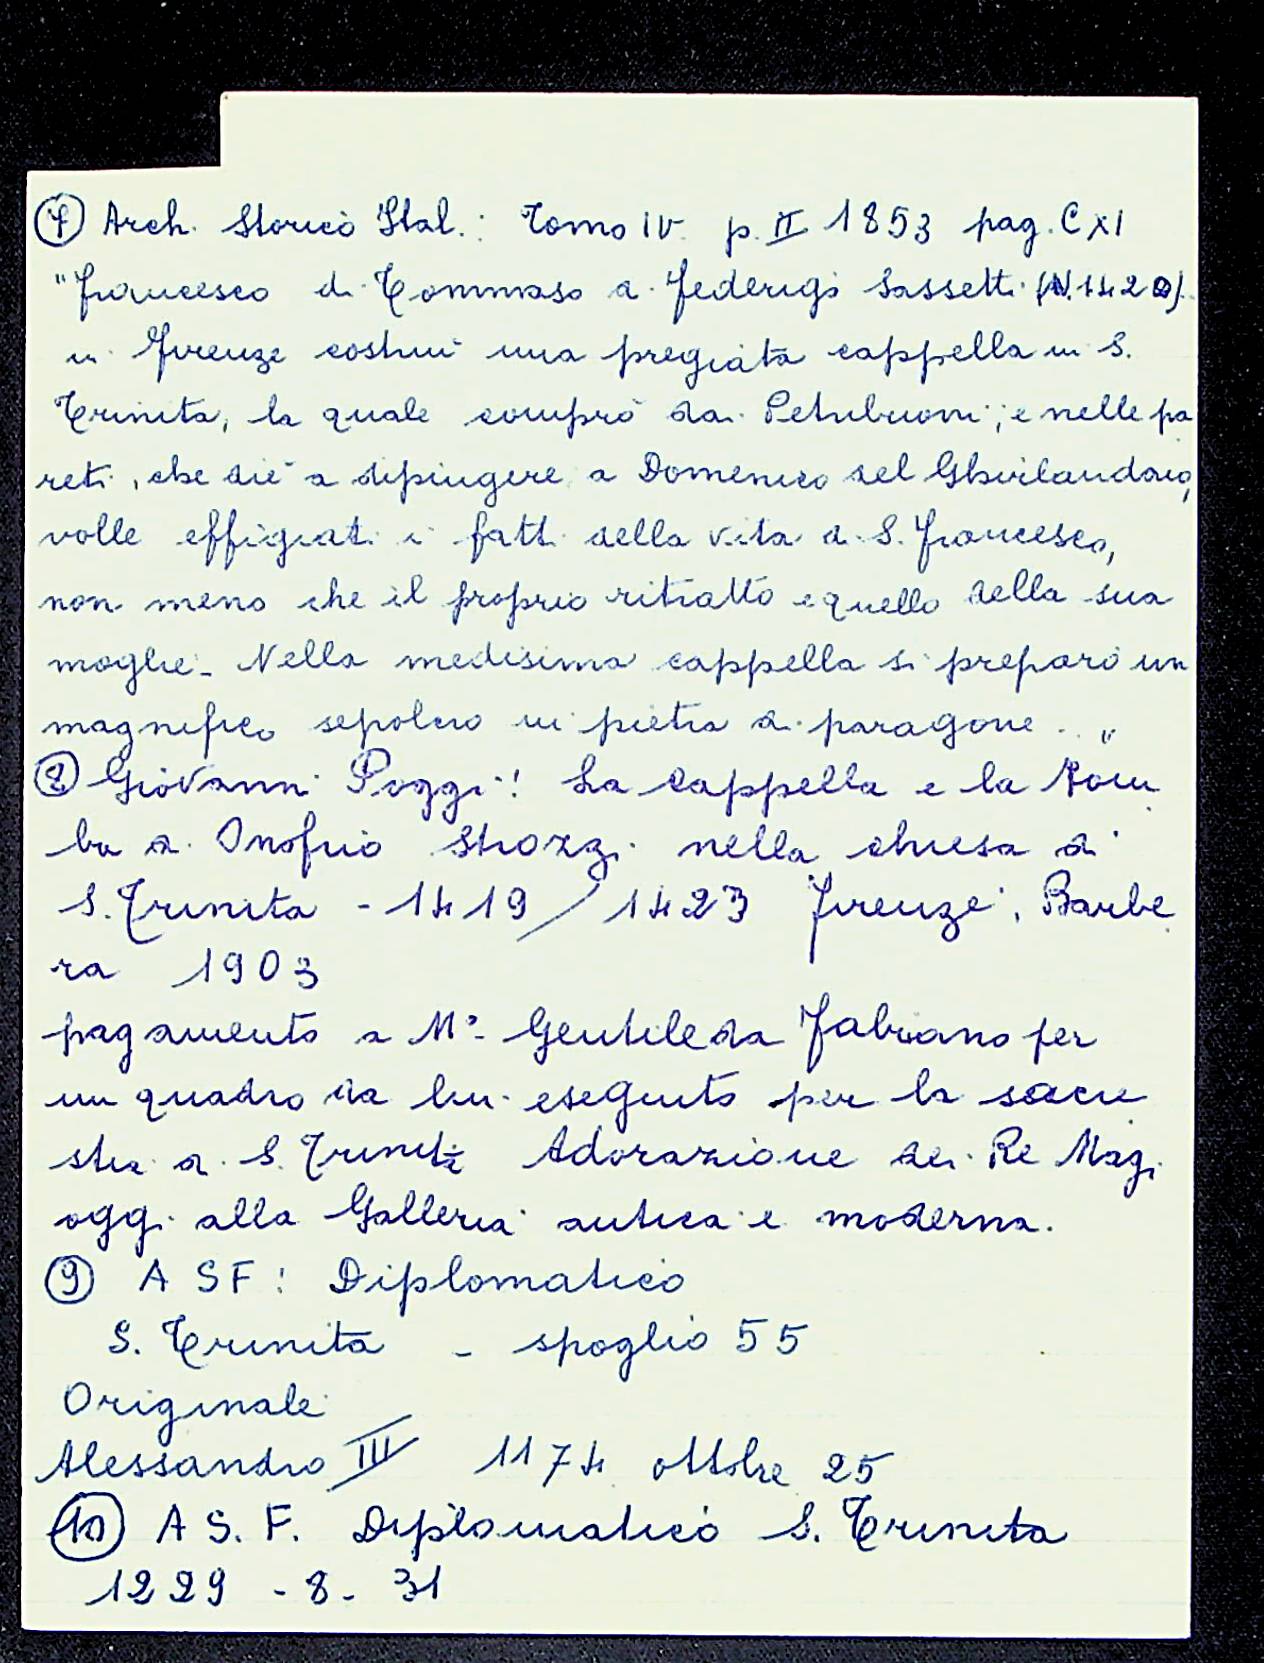 ⑦ Arch. Storico Ital.: Tomo IV. p. II 1853 pag. CXI
"Francesco di Tommaso di Federigo Sassetti (N. 1420)
in Firenze costruì una pregiata cappella in S.
Trinita, la quale comprò dai Petribuoni; e nelle pa
reti, che diè a dipingere a Domenico del Ghirlandaio,
volle effigiati i fatti della vita di S. Francesco,
non meno che il proprio ritratto e quello della sua
moglie. Nella medesima cappella si preparò un
magnifico sepolcro in pietra di paragone . . "
⑧ Giovanni Poggi: La Cappella e la Tom
ba di Onofrio Strozzi nella chiesa di
S. Trinita - 1419/1423 Firenze, Barbe
ra 1903
pagamento a M° Gentile da Fabriano per
un quadro da lui eseguito per la sacre
stia di S. Trinita Adorazione dei Re Magi
oggi alla Galleria antica e moderna.
⑨ A S F: Diplomatico
S. Trinita - spoglio 55
Originale
Alessandro III 1174 ottobre 25
⑩ A S. F. Diplomatico S. Trinita
1229 - 8 - 31